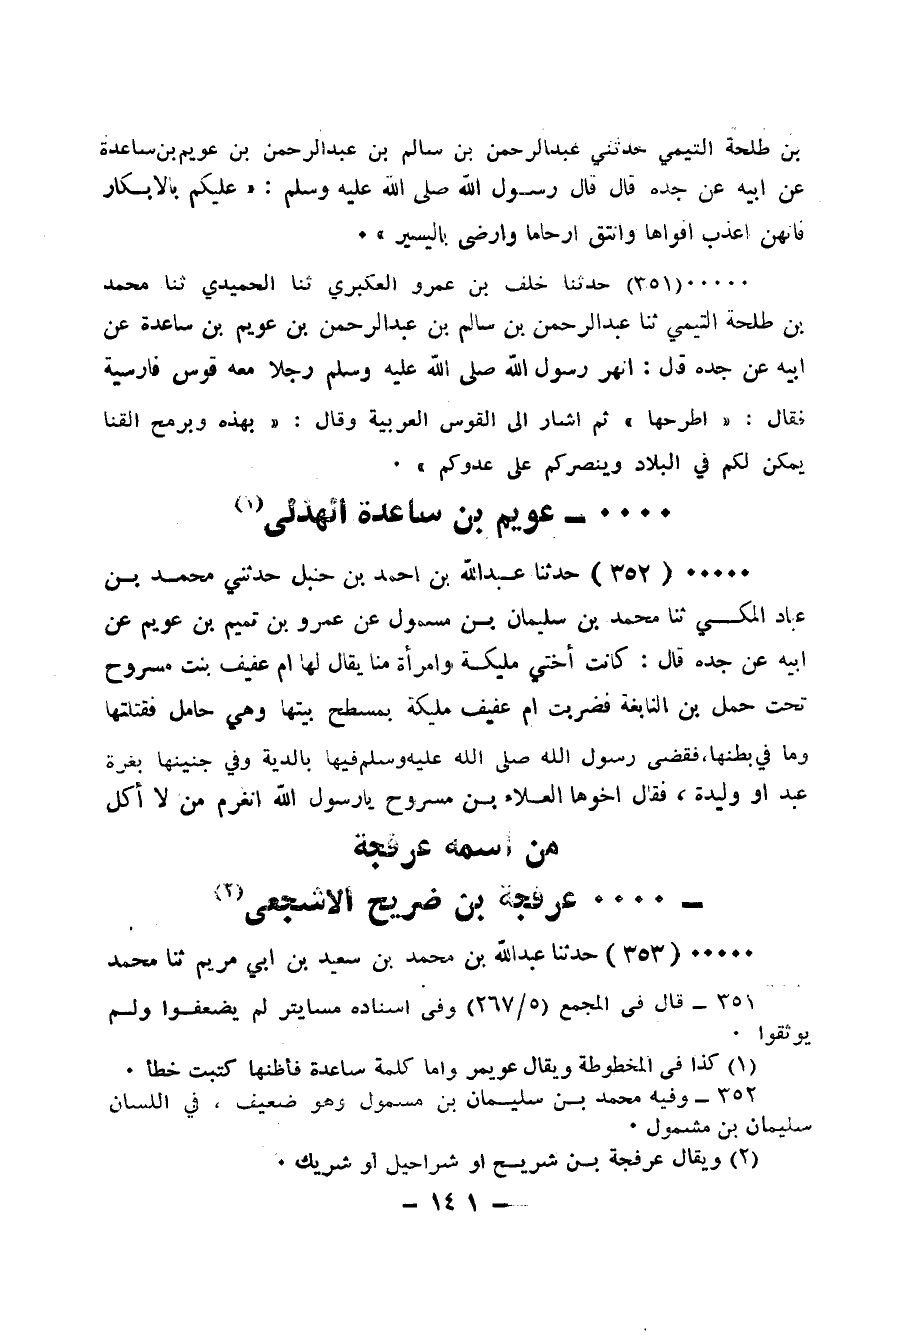 بن طلحة التيمي حدثني عبدالرحمن بن سالم بن عبدالرحمن بن عويم بن ساعدة
عن ابيه عن جده قال قال رسول الله صلى الله عليه وسلم : « عليكم بالابكار
فانهن اعذب افواها وانتق ارحاما وارضى باليسير » ٠
٠٠٠٠٠(٣٥١) حدثنا خلف بن عمرو العكبري ثنا الحميدي ثنا محمد
بن طلحة التيمي ثنا عبدالرحمن بن سالم بن عبدالرحمن بن عويم بن ساعدة عن
ابيه عن جده قال : انهر رسول الله صلى الله عليه وسلم رجلا معه قوس فارسية
فقال : « اطرحها » ثم اشار الى القوس العربية وقال : « بهذه وبرمح القنا
يمكن لكم في البلاد وينصركم على عدوكم » ٠
٠٠٠٠ ـ عويم بن ساعدة الهذلي(١)
٠٠٠٠٠ ( ٣٥٢ ) حدثنا عبدالله بن احمد بن حنبل حدثني محمد بن
عباد المكي ثنا محمد بن سليمان بن مسمول عن عمرو بن تميم بن عويم عن
ابيه عن جده قال : كانت أختي مليكة وامرأة منا يقال لها ام عفيف بنت مسروح
تحت حمل بن النابغة فضربت ام عفيف مليكة بمسطح بيتها وهي حامل فقتلتها
وما في بطنها، فقضى رسول الله صلى الله عليه وسلم فيها بالدية وفي جنينها بغرة
عبد او وليدة ، فقال اخوها العلاء بن مسروح يارسول الله انغرم من لا أكل
من اسمه عرفجة
ـ ٠٠٠٠ عرفجة بن ضريح الاشجعي(٢)
٠٠٠٠٠ ( ٣٥٣ ) حدثنا عبدالله بن محمد بن سعيد بن ابي مريم ثنا محمد
٣٥١ ـ قال في المجمع (٢٦٧/٥) وفي اسناده مساتير لم يضعفوا ولم
يوثقوا ٠
(١) كذا في المخطوطة ويقال عويمر واما كلمة ساعدة فأظنها كتبت خطأ ٠
٣٥٢ ـ وفيه محمد بن سليمان بن مسمول وهو ضعيف ، في اللسان
سليمان بن مشمول ٠
(٢) ويقال عرفجة بن شريح او شراحيل او شريك ٠
ـ ١٤١ ـ